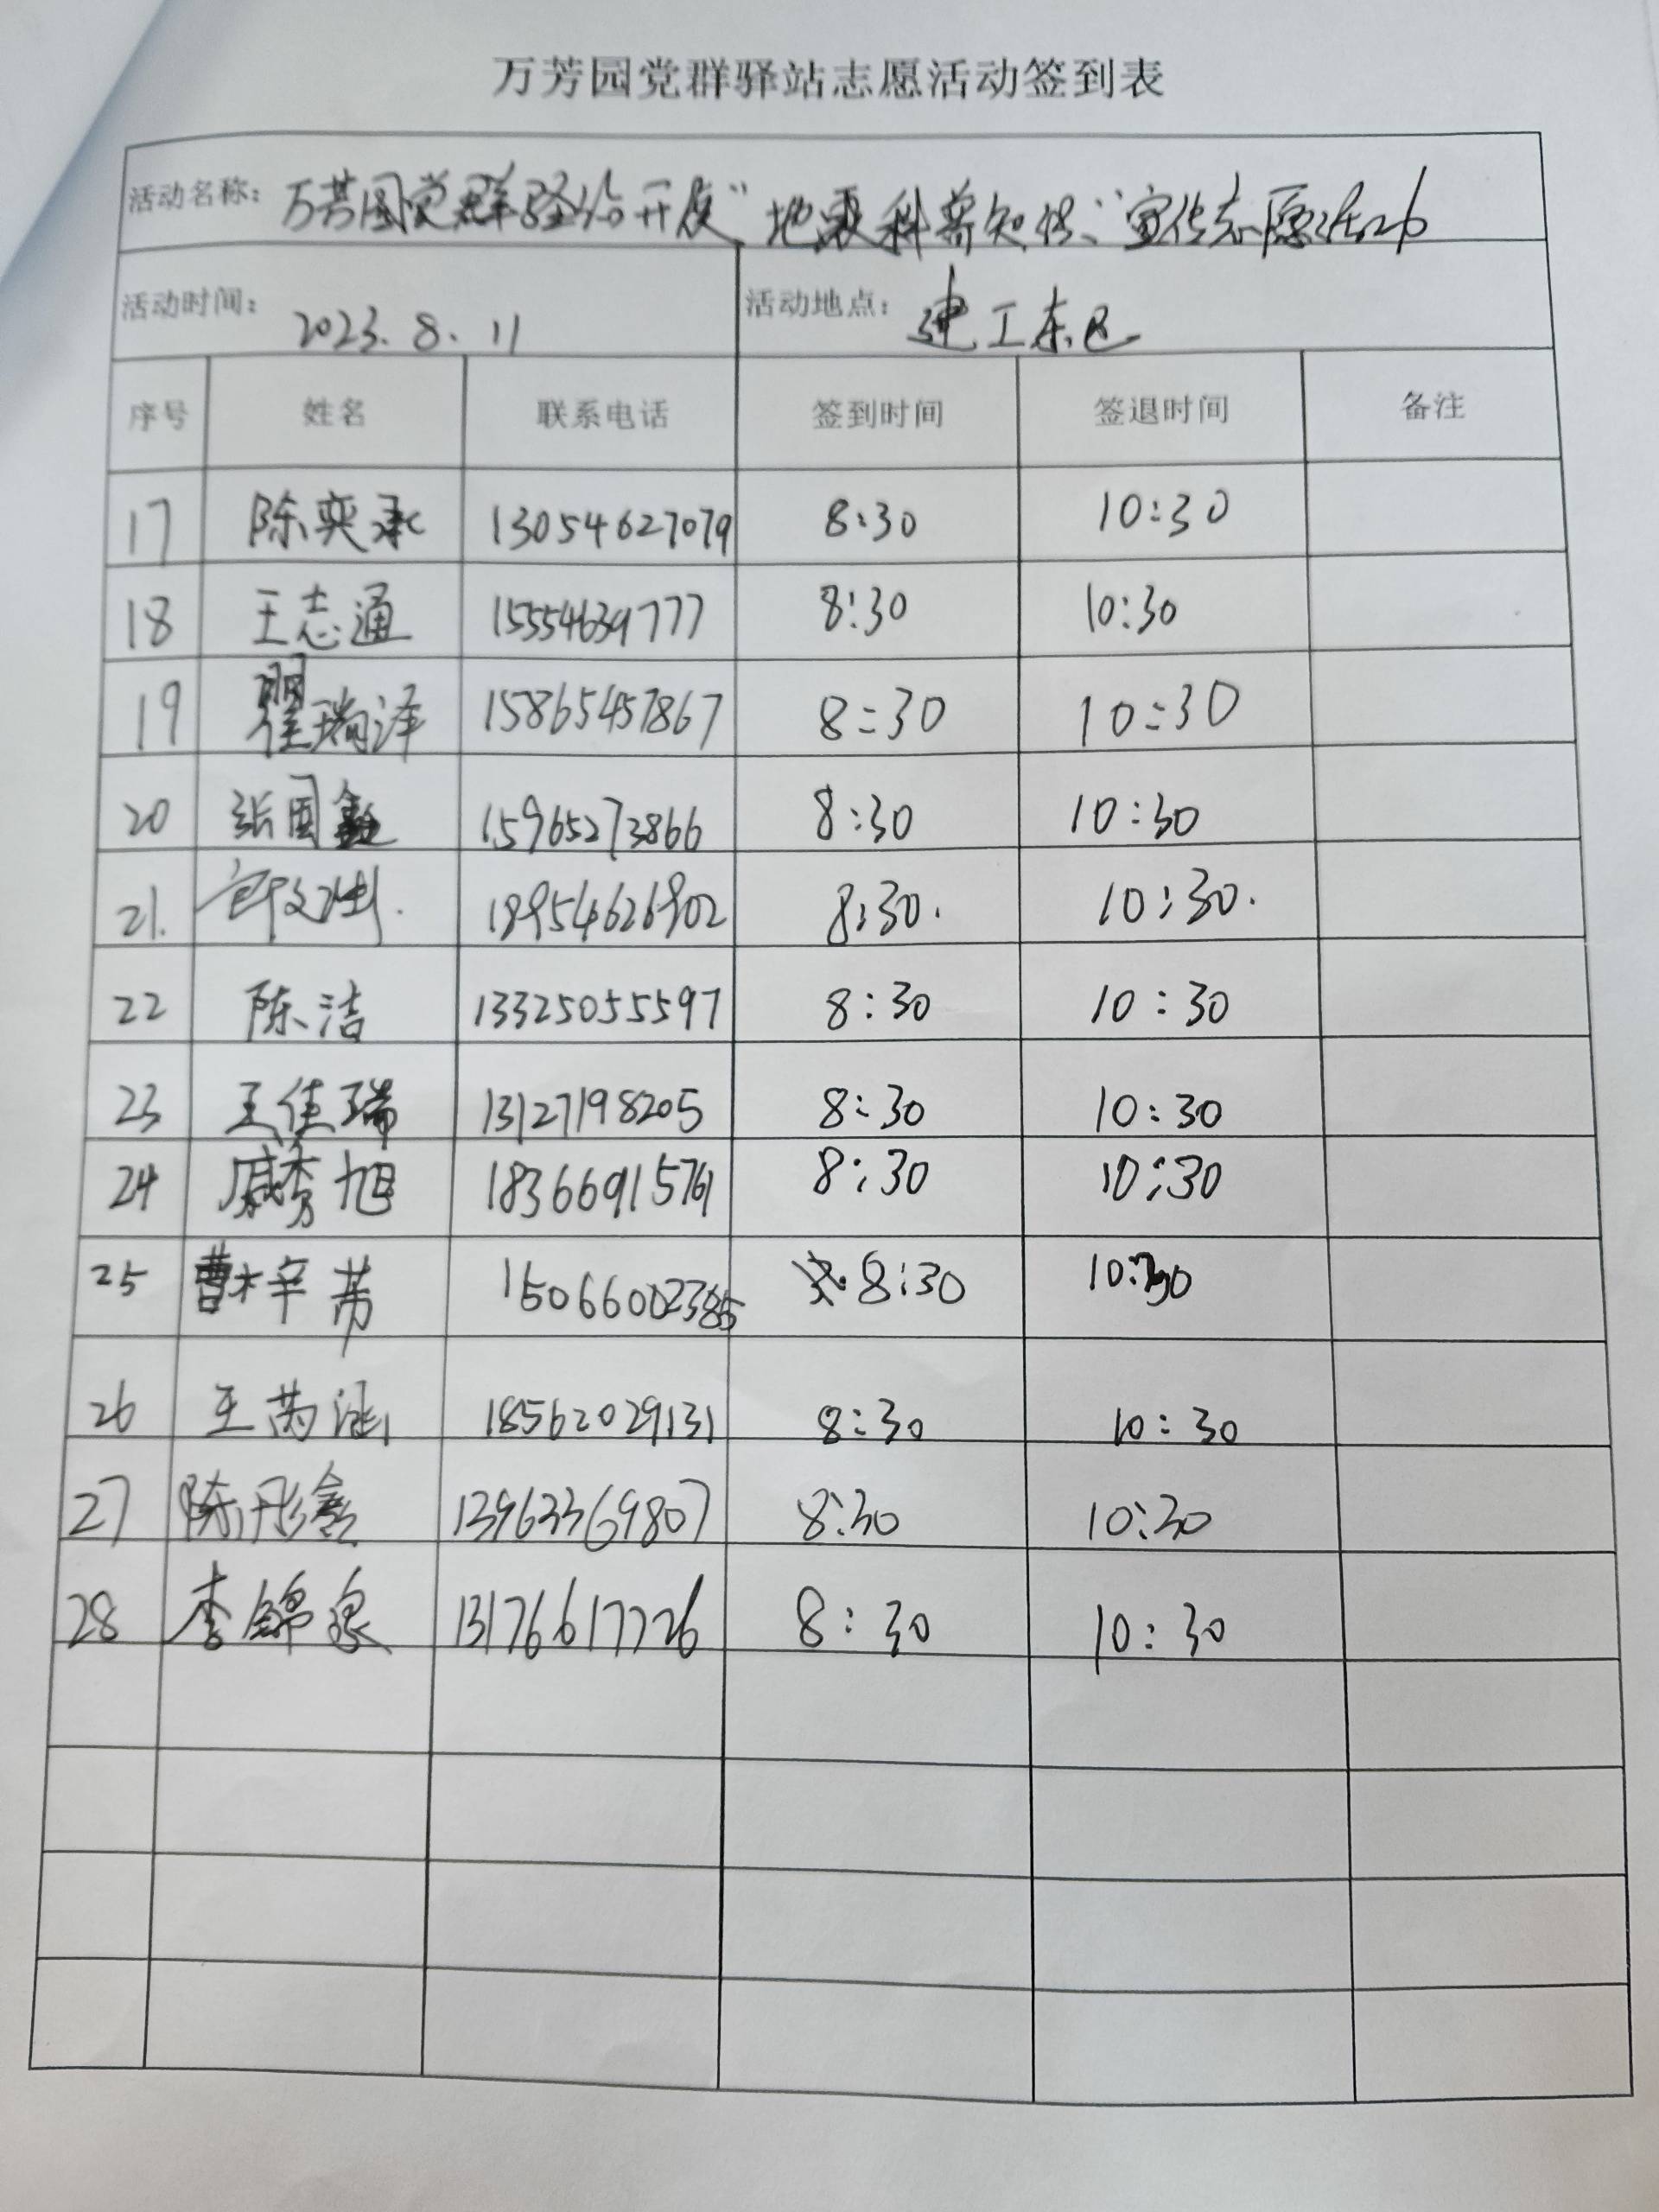 万芳园党群驿站志愿活动签到表
活动名称: 万芳园党群驿站开展"地震科普知识"宣传志愿活动
活动时间: 2023.8.11 活动地点: 建工东区
序号 姓名 联系电话 签到时间 签退时间 备注
17 陈奕承 13054627079 8:30 10:30
18 王志通 15554639777 8:30 10:30
19 翟瑞泽 15865457867 8:30 10:30
20 张国鑫 15965273866 8:30 10:30
21. 18954626902 8:30. 10:30.
22 陈洁 13325055597 8:30 10:30
23 王佳瑞 13127198205 8:30 10:30
24 戚秀旭 18366915761 8:30 10:30
25 曹梓芮 15066002385 8:30 10:30
26 王芮涵 18562029131 8:30 10:30
27 陈彤鑫 13963369807 8:30 10:30
28 李锦泉 13176617726 8:30 10:30